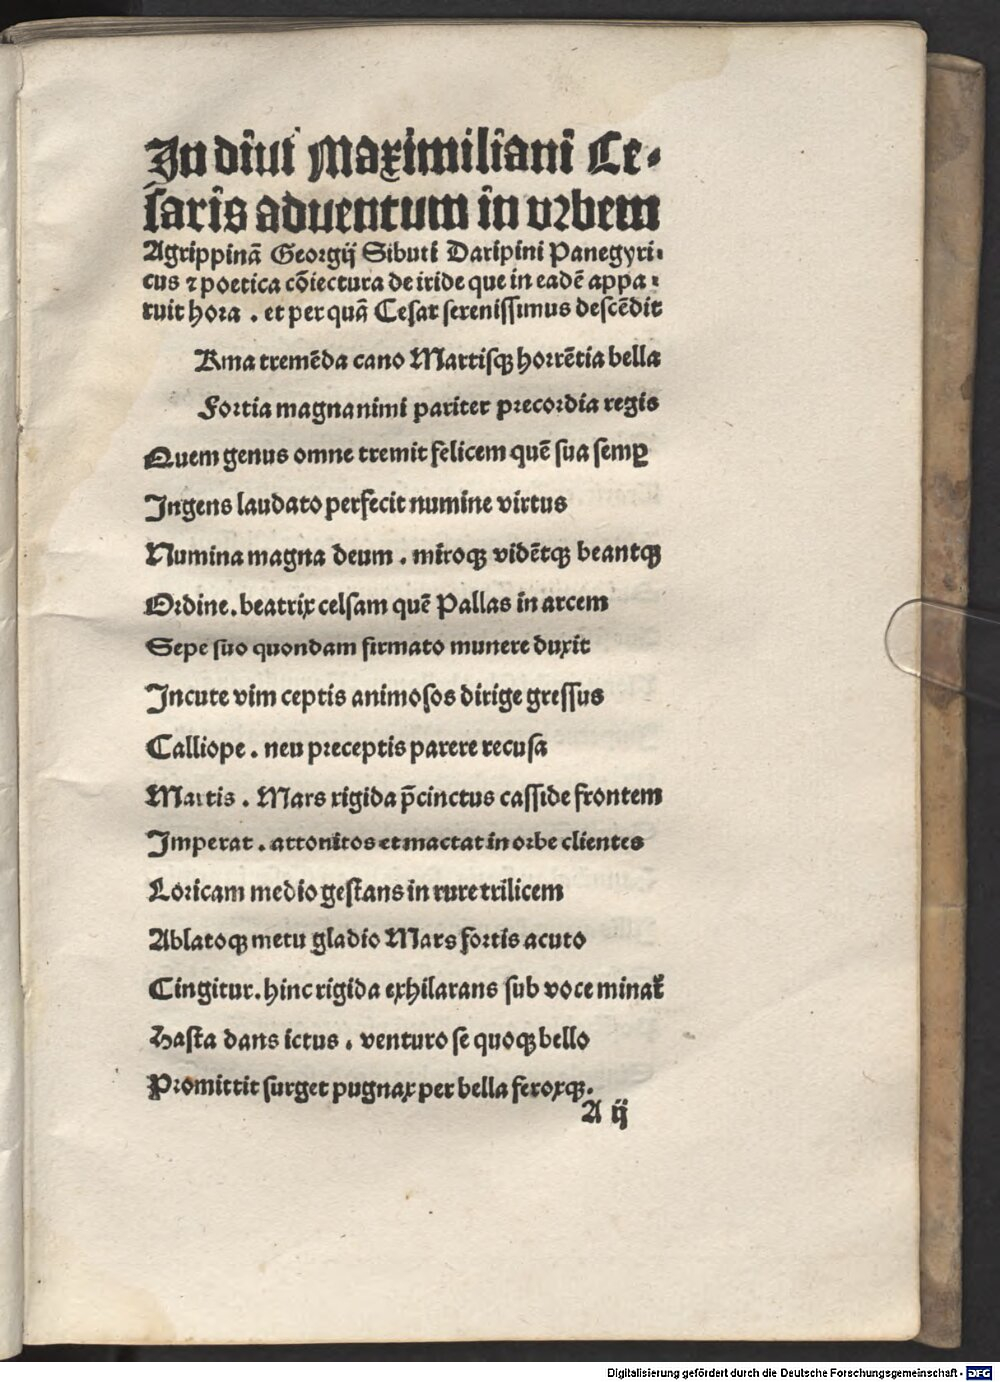 In diui Maximiliani Ce-
saris aduentum in vrbem
Agrippinā Georgij Sibuti Daripini Panegyri-
cus ⁊ poetica cōiectura de iride que in eadē appa-
ruit hora . et per quā Cesar serenissimus descēdit
Arma tremēda cano Martisqꝫ horrētia bella
Fortia magnanimi pariter precordia regis
Quem genus omne tremit felicem quē sua semꝑ
Ingens laudato perfecit numine virtus
Numina magna deum . miroqꝫ vidētqꝫ beantqꝫ
Ordine . beatrix celsam quē Pallas in arcem
Sepe suo quondam firmato munere duxit
Incute vim ceptis animosos dirige gressus
Calliope . neu preceptis parere recusa
Martis . Mars rigida p̄cinctus casside frontem
Imperat . attonitos et mactat in orbe clientes
Loricam medio gestans in rure trilicem
Ablatoqꝫ metu gladio Mars fortis acuto
Cingitur . hinc rigida exhilarans sub voce minat᷑
Hasta dans ictus . venturo se quoqꝫ bello
Promittit surget pugnax per bella feroxqꝫ.
A ij
Digitalisierung gefördert durch die Deutsche Forschungsgemeinschaft - DFG